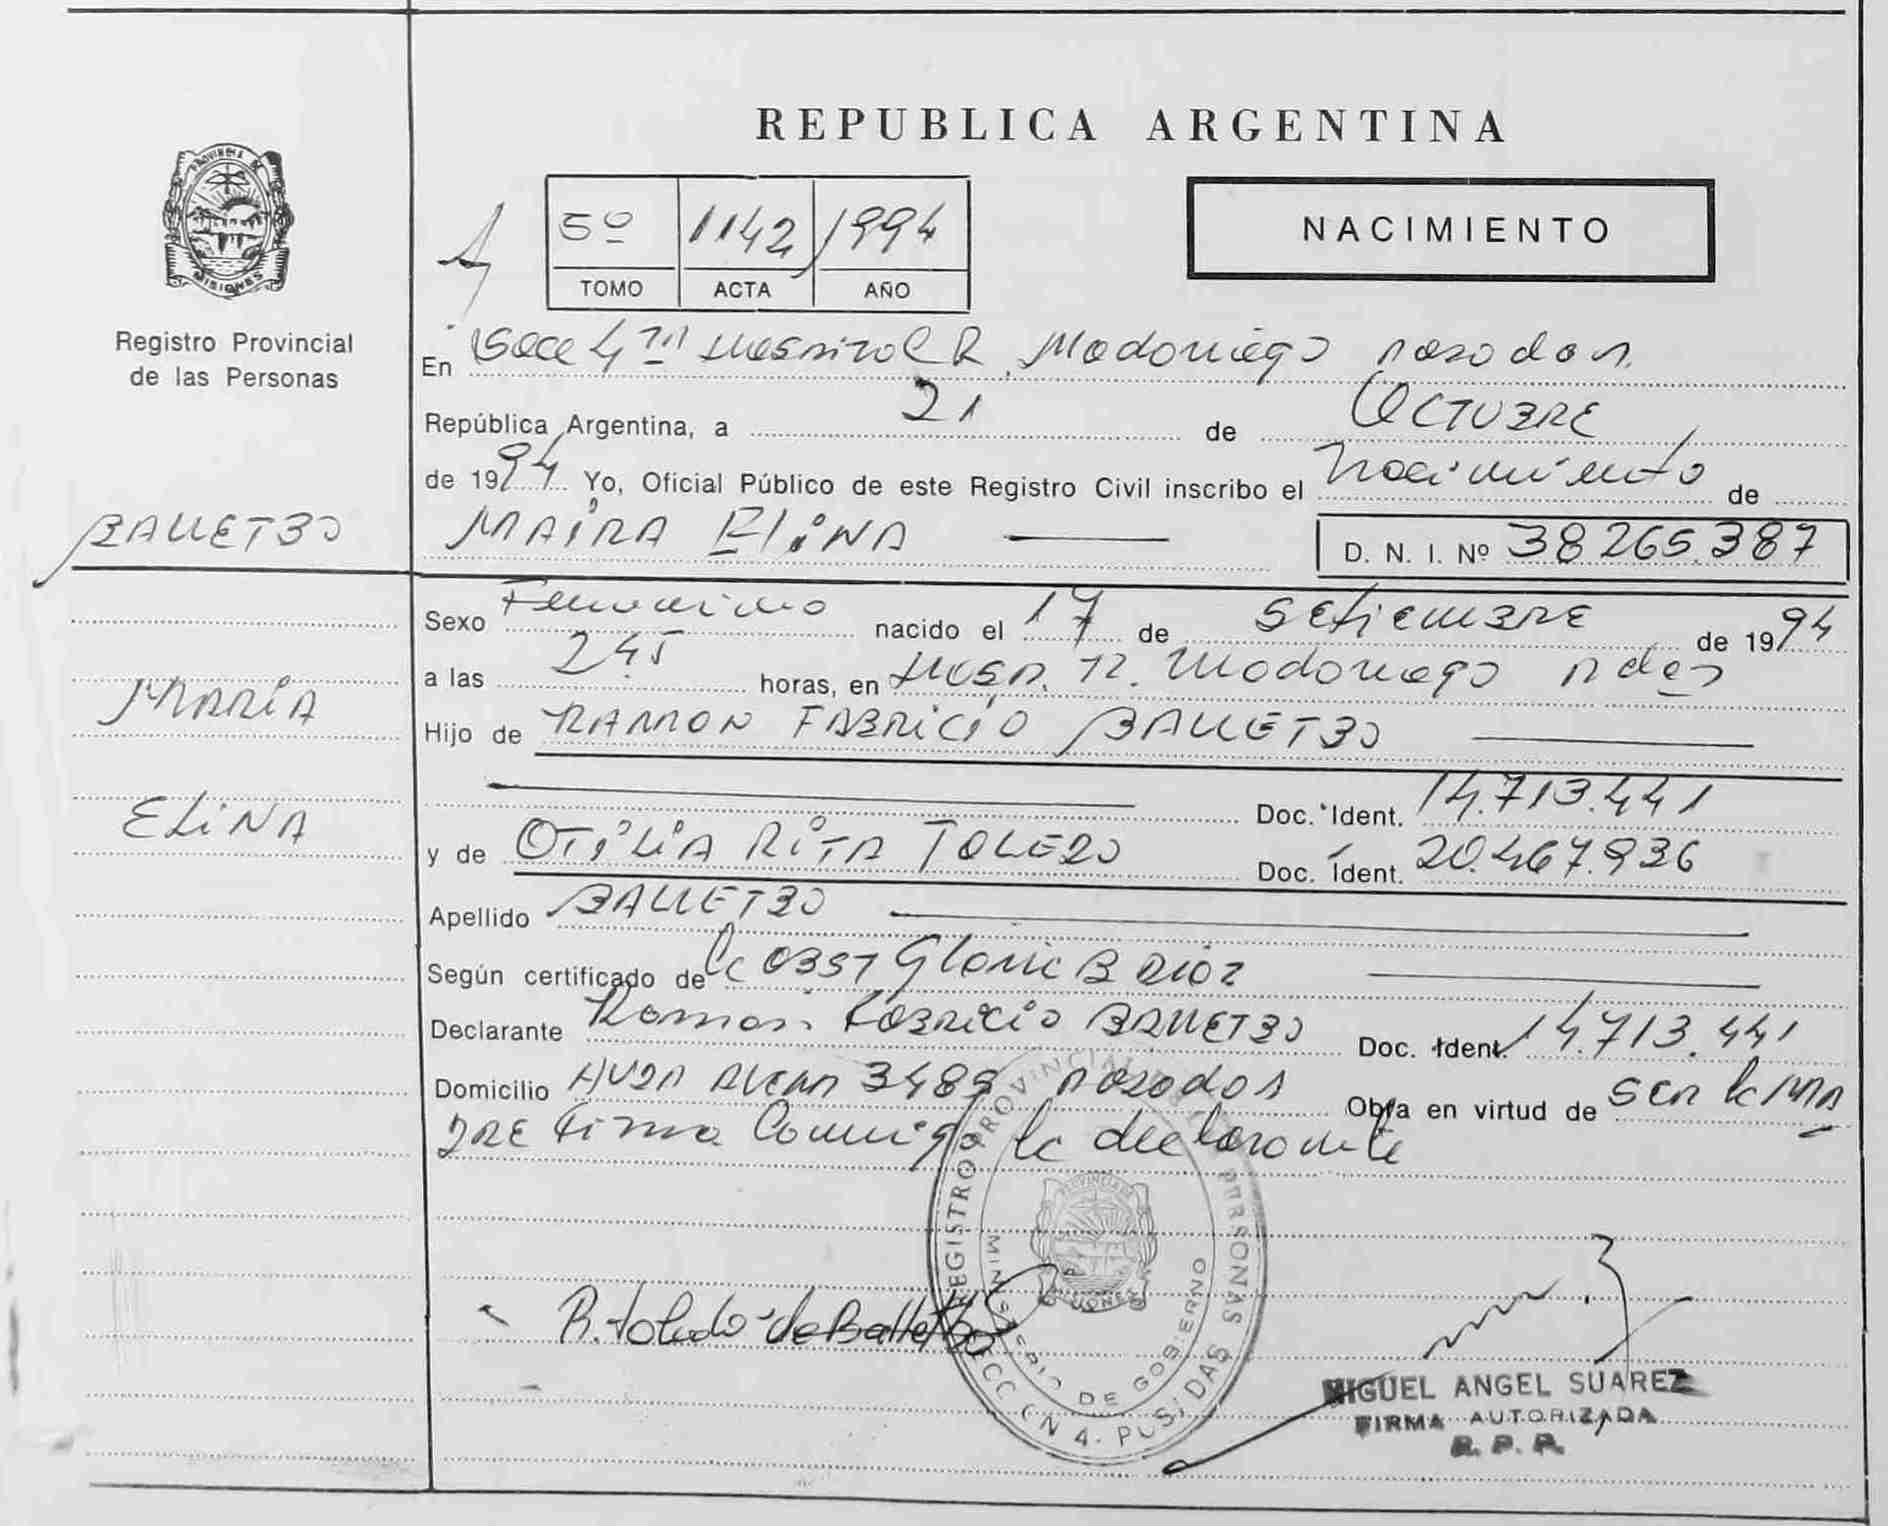 REPUBLICA ARGENTINA
PROVINCIA DE
MISIONES
Registro Provincial
de las Personas
5º 1142 1994
TOMO ACTA AÑO
NACIMIENTO
En Secc 4ta R. Madariaga Posadas
República Argentina, a 21 de OCTUBRE
de 1994 Yo, Oficial Público de este Registro Civil inscribo el Nacimiento de
BALLETBO
MAIRA ELINA
D. N. I. Nº 38265.387
Sexo Femenino nacido el 17 de SETIEMBRE de 1994
a las 245 horas, en Hosp. R. Madariaga Pdas
MARIA
Hijo de RAMON FABRICIO BALLETBO
Doc. Ident. 14.713.441
ELINA
y de OTILIA RITA TOLEDO Doc. Ident. 20.467.936
Apellido BALLETBO
Según certificado de la Gloria B Diaz
Declarante Ramon Fabricio BALLETBO Doc. Ident. 14.713.441
Domicilio 3489 Posadas Obra en virtud de SER la MA
DRE Firma Conmigo la declarante
REGISTRO PROVINCIAL DE LAS PERSONAS
MINISTERIO DE GOBIERNO
SECCION 4- POSADAS
R. Toledo de Balletbo
MIGUEL ANGEL SUAREZ
FIRMA AUTORIZADA
R. P. P.